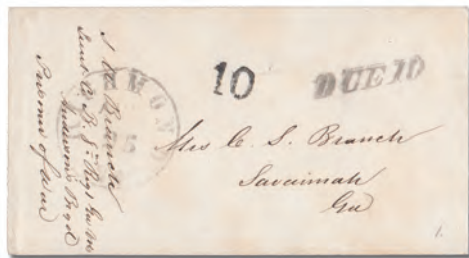 J. W. Branch
Lieut Co B. 8th Regt Ga Vols
Andersons Brgd
Prisoner of War
MOND
10
DUE 10
Mrs C. S. Branch
Savannah
Ga
1.